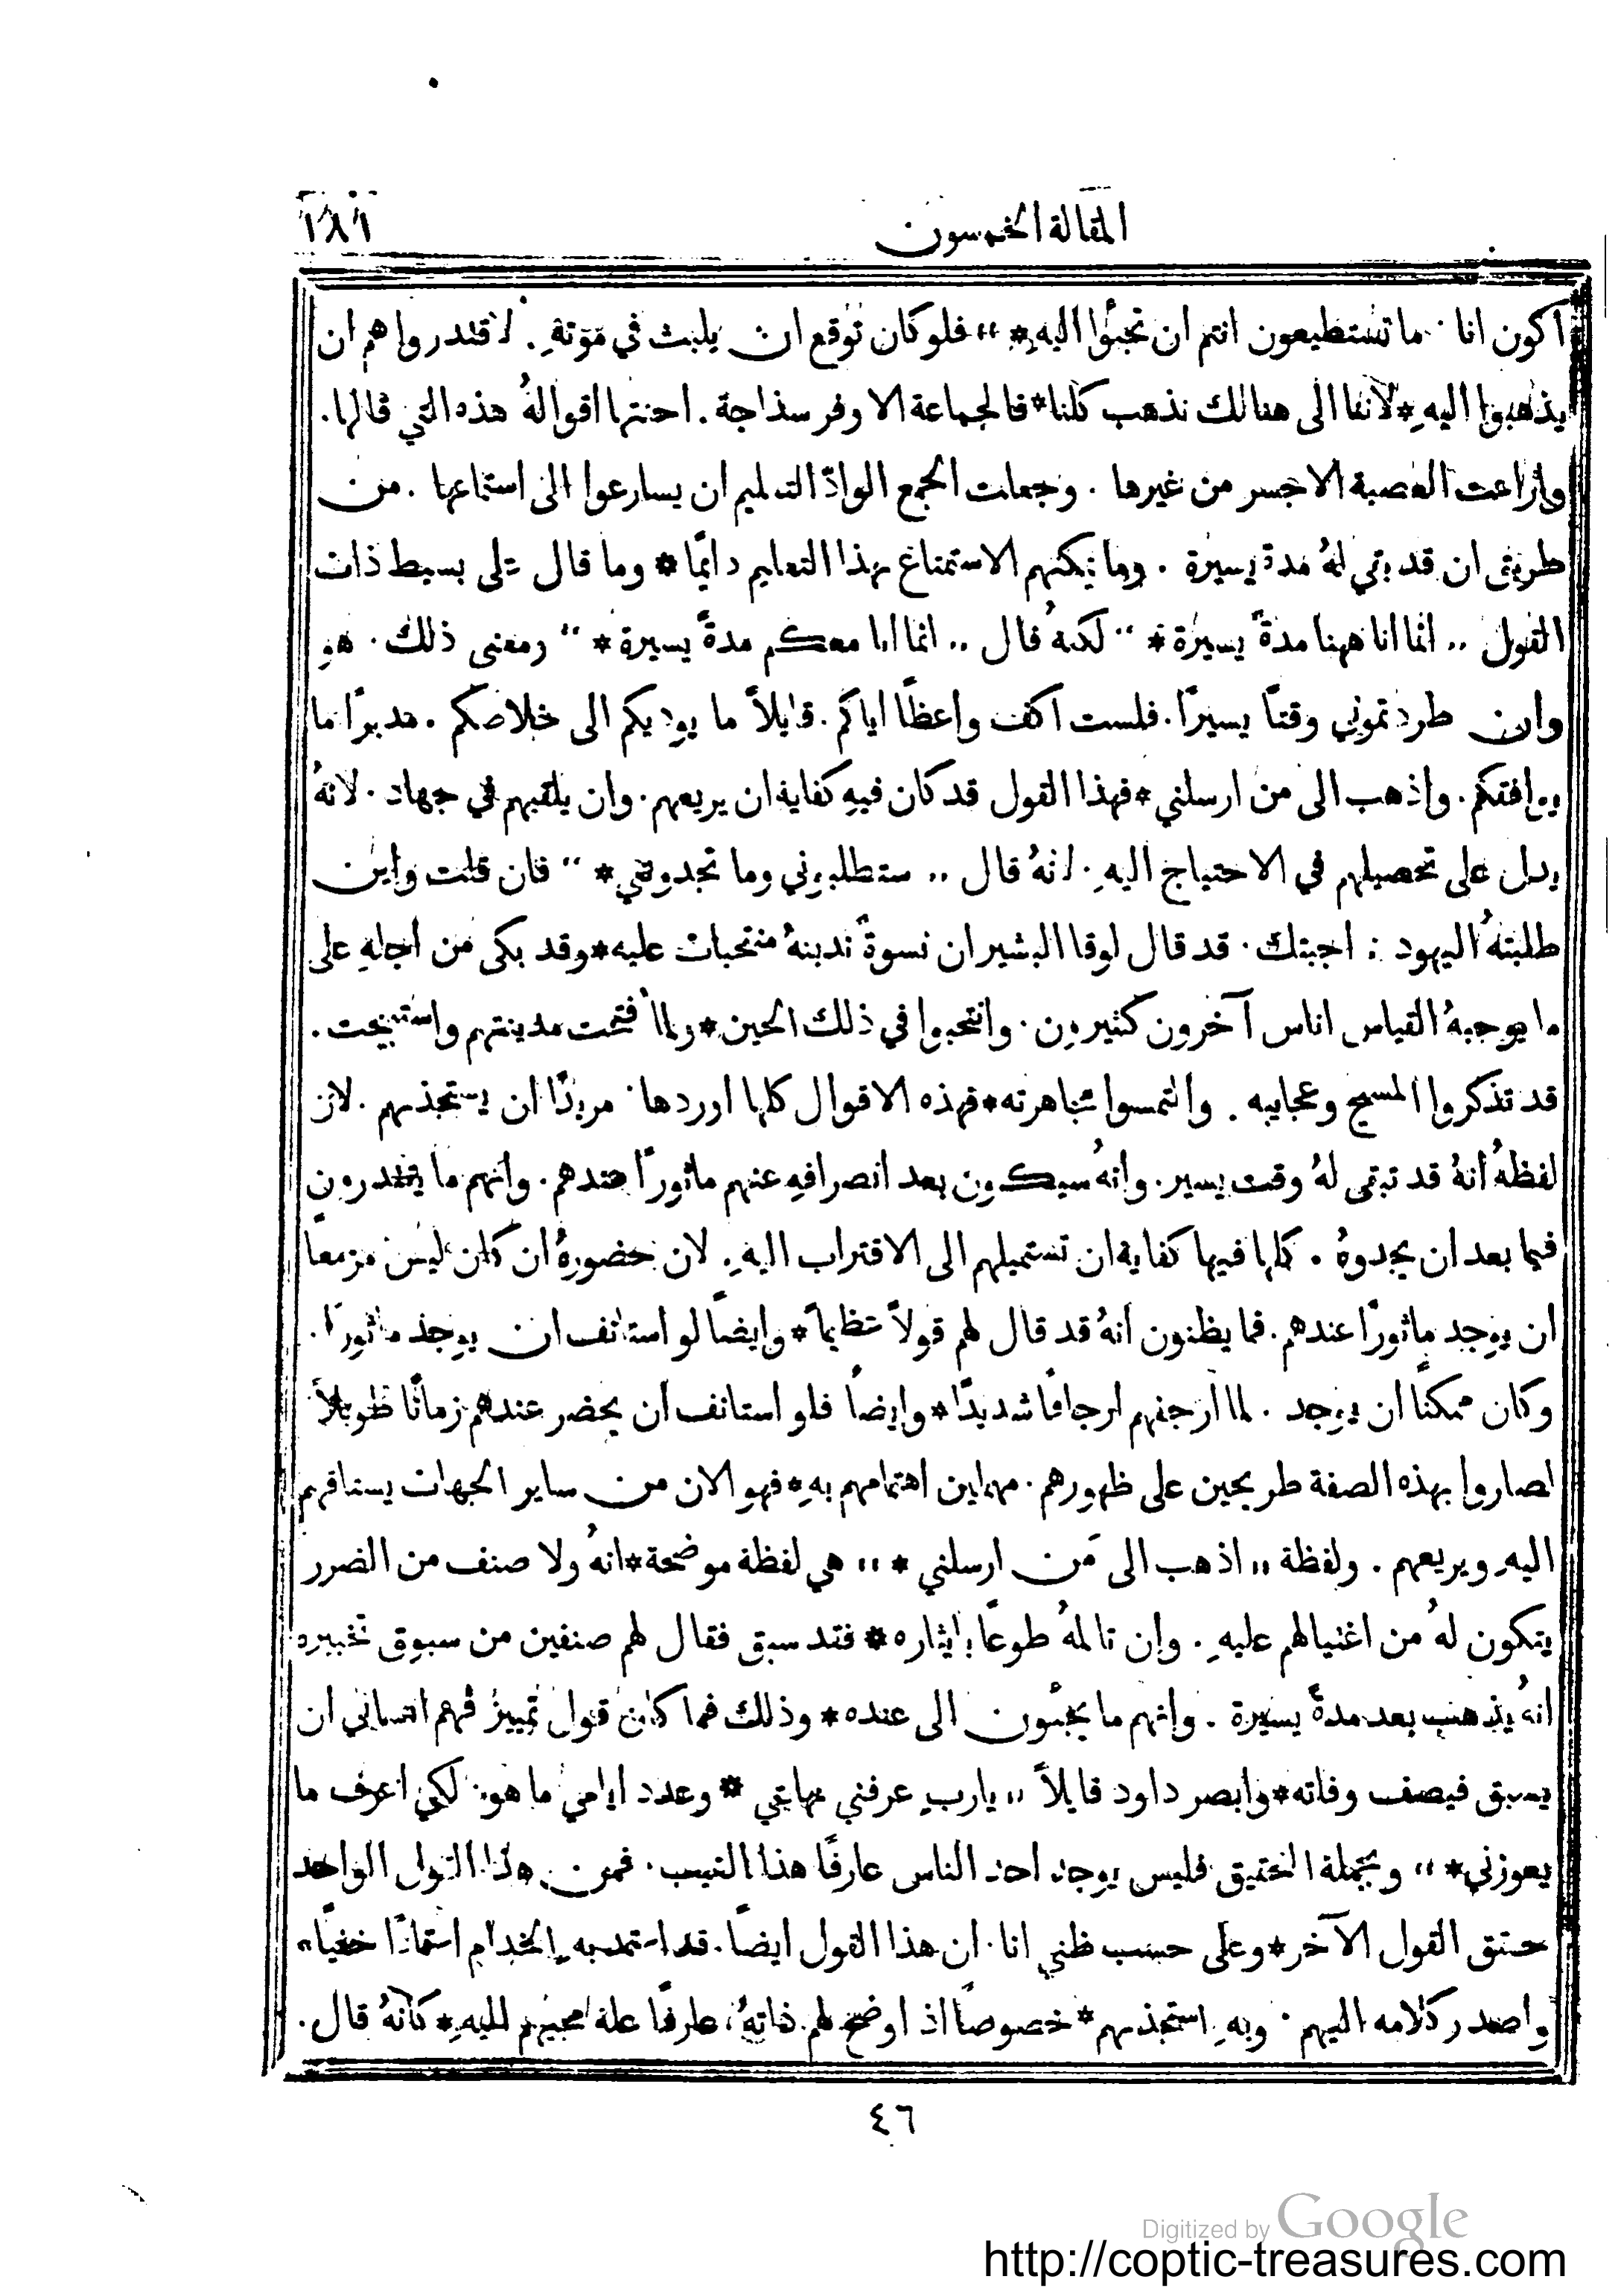 المقالة الخمسون ١٨١
اكون انا ٠ ما تستطيعون انتم ان تجئوا اليهِ* ،، فلو كان توقع ان يلبث في موتهِ ٠ لاقتدروا هم ان
يذهبوا اليهِ* لاننا الى هنالك نذهب كلنا* فالجماعة الاوفر سذاجة . احنتها اقوالهُ هذه التي قالها .
واراعت العصبة الاجسر من غيرها . وجعلت الجمع الوادّ التعليم ان يسارعوا الى استماعها . من
طريق ان قد بقي لهُ مدة يسيرة . وما يمكنهم الاستمتاع بهذا التعليم دايمًا* وما قال على بسيط ذات
القول ,, انما انا ههنا مدةً يسيرة* ،، لكنهُ قال ,, انما انا معكم مدةً يسيرة* ،، ومعنى ذلك ٠ هو
وان طردتموني وقتًا يسيرًا . فلست اكف واعظًا اياكم . قايلاً ما يوديكم الى خلاصكم . مدبرًا ما
يوافقكم . واذهب الى من ارسلني* فهذا القول قد كان فيهِ كفاية ان يريعهم . وان يلقيهم في جهاد . لانهُ
يدل على تحصيلهم في الاحتياج اليهِ ٠ لانهُ قال ,, ستطلبوني وما تجدوني* ،، فان قلت واين
طلبتهُ اليهود : اجبتك ٠ قد قال لوقا البشير ان نسوةً ندبنهُ منتحبات عليه* وقد بكى من اجلهِ على
ما يوجبهُ القياس اناس آخرون كثيرون ٠ وانتحبوا في ذلك الحين* ولما فتحت مدينتهم واستبيحت .
قد تذكروا المسيح وعجايبه . والتمسوا مظاهرته* فهذه الاقوال كلها اوردها ٠ مريدًا ان يستجذبهم . لان
لفظهُ انهُ قد تبقى لهُ وقت يسير . وانهُ سيكون بعد انصرافهِ عنهم ماثورًا عندهم . وانهم ما يقتدرون
فيما بعد ان يجدوهُ . كلها فيها كفاية ان تستميلهم الى الاقتراب اليهِ . لان حضورهُ ان كان ليس مزمعًا
ان يوجد ماثورًا عندهم . فما يظنون انهُ قد قال لهم قولاً عظيمًا* وايضًا لو استانف ان يوجد ماثورًا .
وكان ممكنًا ان يوجد . لما ارجفهم ارجافًا شديدًا* وايضًا فلو استانف ان يحضر عندهم زمانًا طويلاً
لصاروا بهذه الصفة طريحين على ظهورهم . مهملين اهتمامهم بهِ* فهو الان من ساير الجهات يستاقهم
اليهِ ويريعهم . ولفظة ,, اذهب الى مَن ارسلني* ،، هي لفظة موضحة* انهُ ولا صنف من الضرر
يتكون لهُ من اغتيالهم عليهِ . وان تالمهُ طوعًا بايثاره* فقد سبق فقال لهم صنفين من سبوق تخبيره
انهُ يذهب بعد مدةً يسيرة . وانهم ما يجئون الى عنده* وذلك فما كان قول تمييز فهم انساني ان
يسبق فيصف وفاته* وابصر داود قايلاً ,, يارب عرفني نهايتي* وعدد ايامي ما هو ٠ لكي اعرف ما
يعوزني* ،، وبجملة التحقيق فليس يوجد احد الناس عارفًا هذا الغيب . فمن هذا القول الواحد
حقق القول الآخر* وعلى حسب ظني انا ٠ ان هذا القول ايضًا . قد استمد به الخدام استمدادًا خفيًا*
واصدر كلامه اليهم ٠ وبهِ استجذبهم* خصوصًا اذ اوضح لهم ذاتهُ عارفًا علة مجيهم اليهِ* كانهُ قال .
٤٦
Digitized by Google
http://coptic-treasures.com